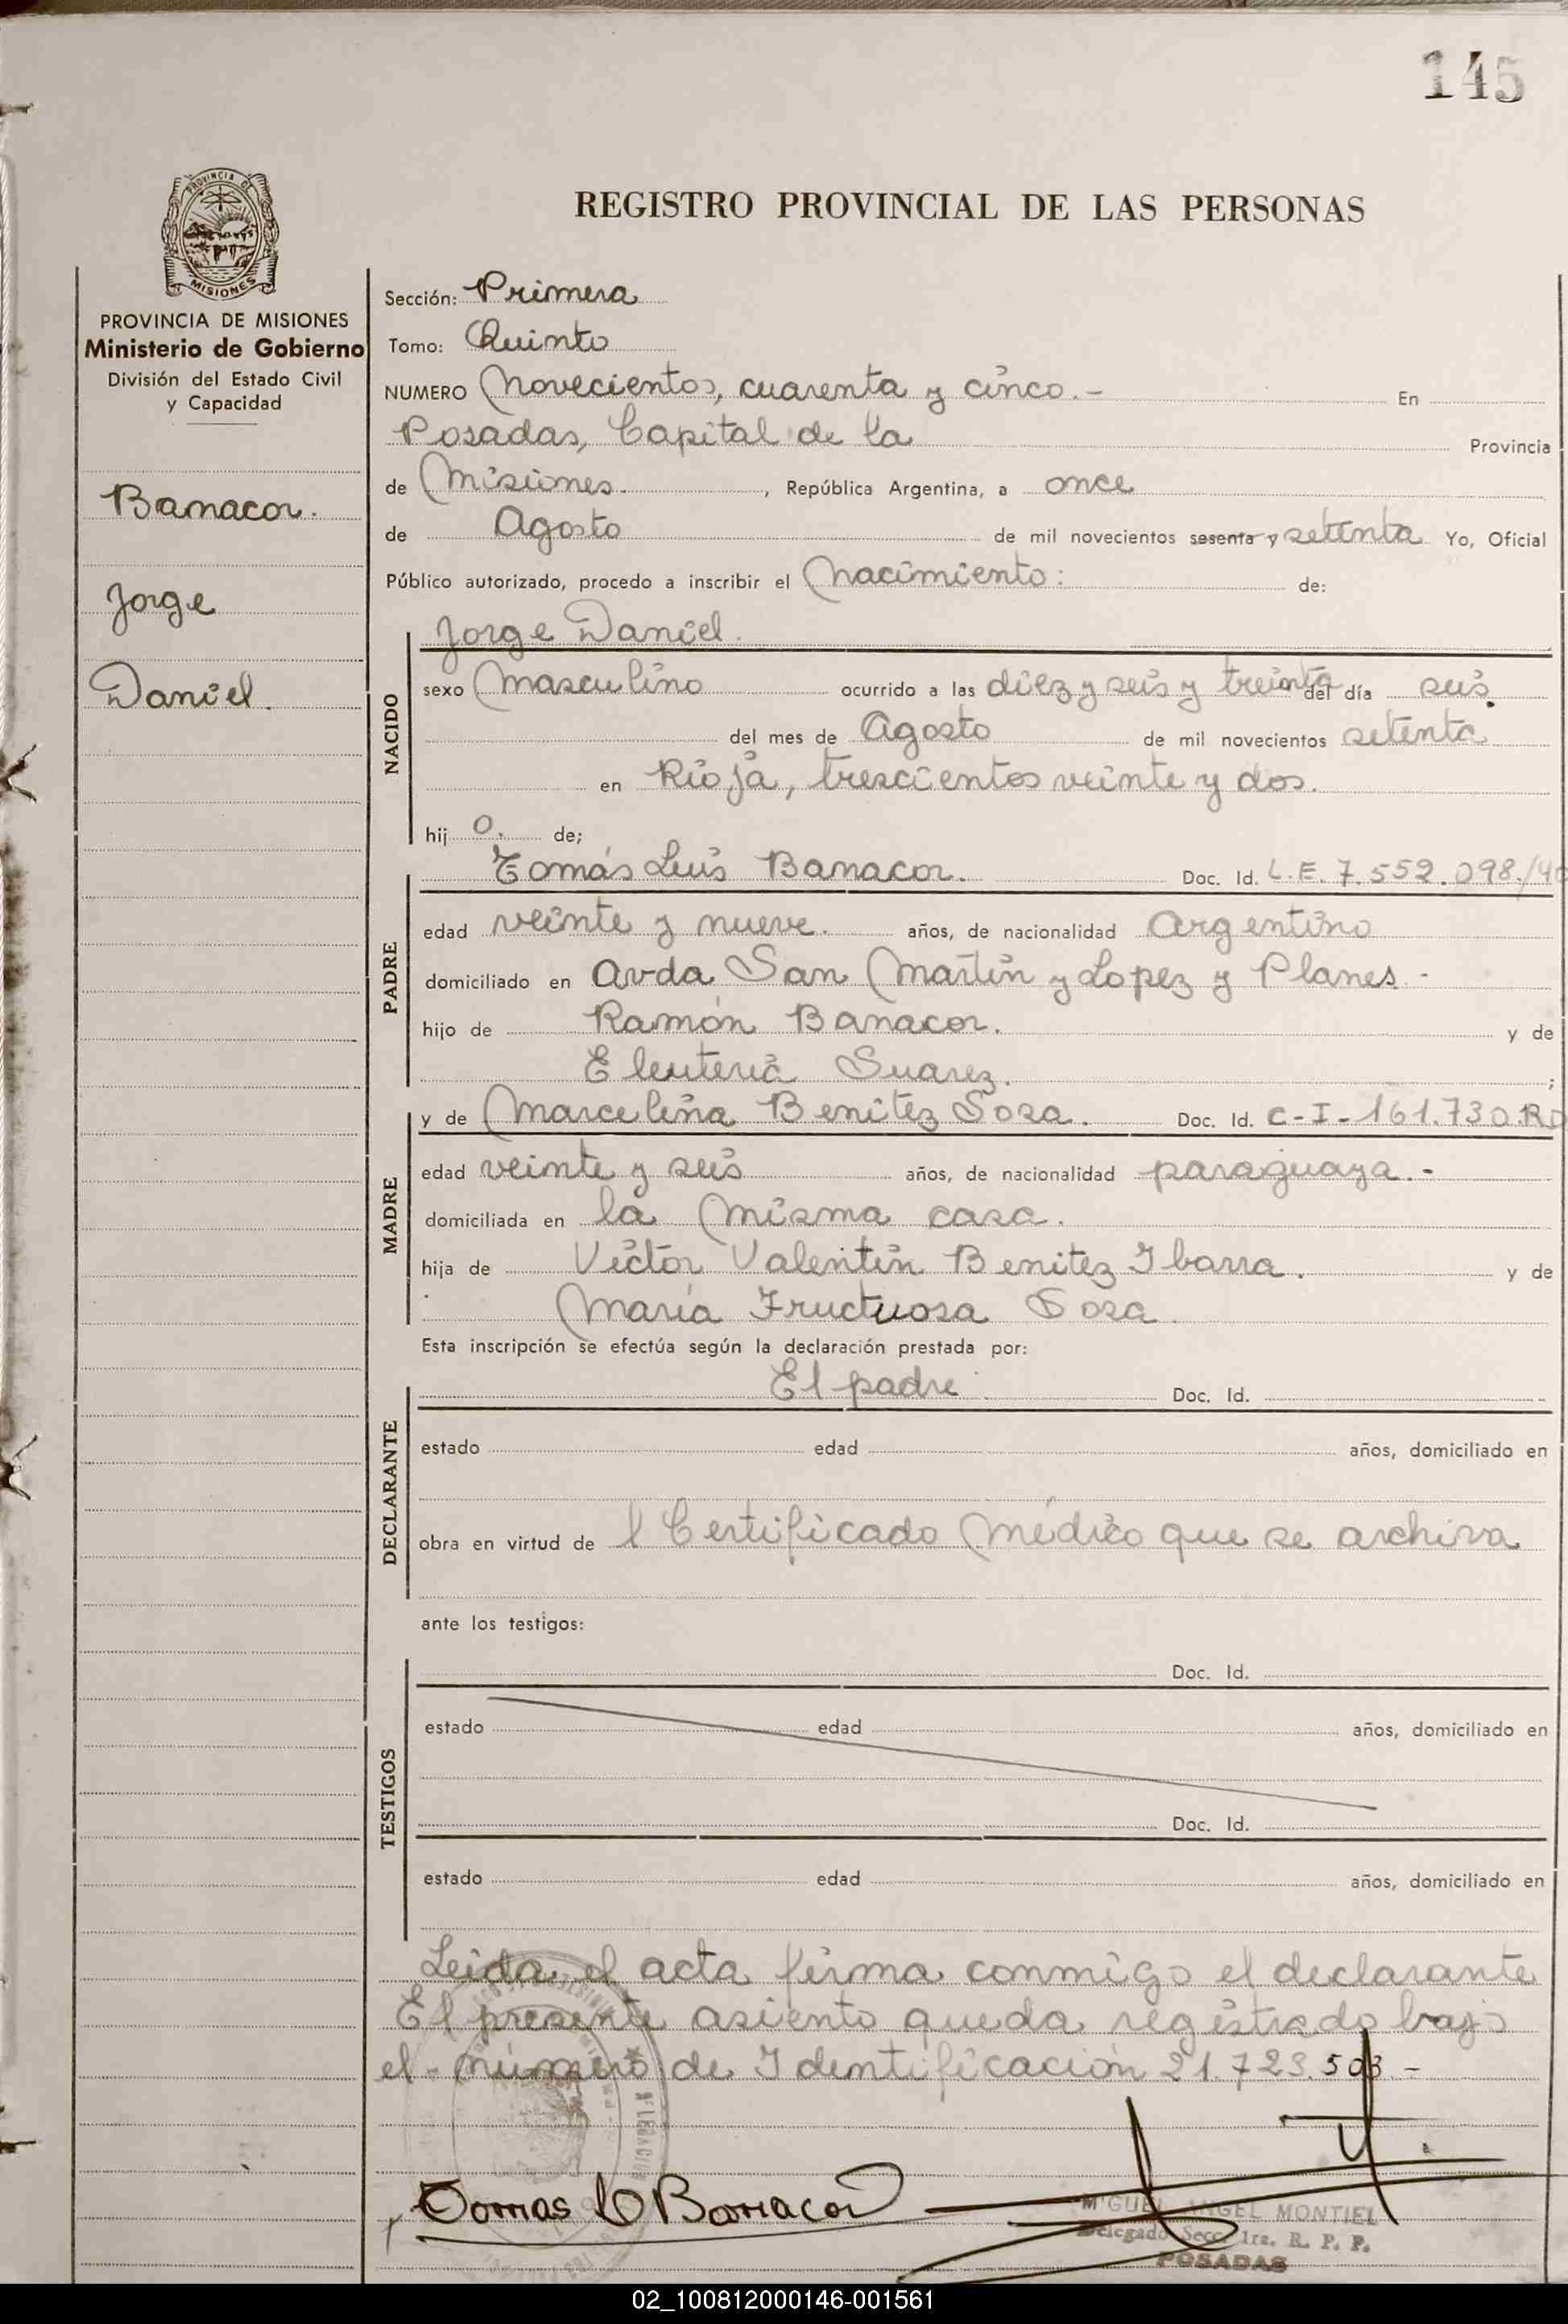 145
PROVINCIA DE
MISIONES
REGISTRO PROVINCIAL DE LAS PERSONAS
PROVINCIA DE MISIONES
Ministerio de Gobierno
División del Estado Civil
y Capacidad
Banacor.
Jorge
Daniel.
Sección: Primera
Tomo: Quinto
NUMERO Novecientos, cuarenta y cinco.- En
Posadas, Capital de la Provincia
de Misiones. , República Argentina, a once
de Agosto de mil novecientos sesenta y setenta Yo, Oficial
Público autorizado, procedo a inscribir el Nacimiento: de:
NACIDO
Jorge Daniel.
sexo Masculino ocurrido a las diez y seis y treinta del día seis.
del mes de Agosto de mil novecientos setenta
en Rioja, trescientos veinte y dos.
hij o. de;
PADRE
Tomás Luis Banacor. Doc. Id. L.E. 7.552.098./40
edad veinte y nueve. años, de nacionalidad Argentino
domiciliado en Avda San Martín y Lopez y Planes -
hijo de Ramón Banacor. y de
Eleuteria Suarez. ;
MADRE
y de Marcelina Benitez Sosa. Doc. Id. C-I-161.730.
edad veinte y seis años, de nacionalidad paraguaya.-
domiciliada en la misma casa.
hija de Victor Valentín Benitez Ibarra. y de
María Fructuosa Sosa.
Esta inscripción se efectúa según la declaración prestada por:
DECLARANTE
El padre Doc. Id.
estado edad años, domiciliado en
obra en virtud de l Certificado Médico que se archiva
ante los testigos:
TESTIGOS
Doc. Id.
estado edad años, domiciliado en
Doc. Id.
estado edad años, domiciliado en
Leida el acta firma conmigo el declarante
El presente asiento queda registrado bajo
el - número de Identificación 21.723.503 -
Tomas L Banacor
MIGUEL ANGEL MONTIEL
Delegado Secc. 1ra. R. P. P.
POSADAS
02_100812000146-001561